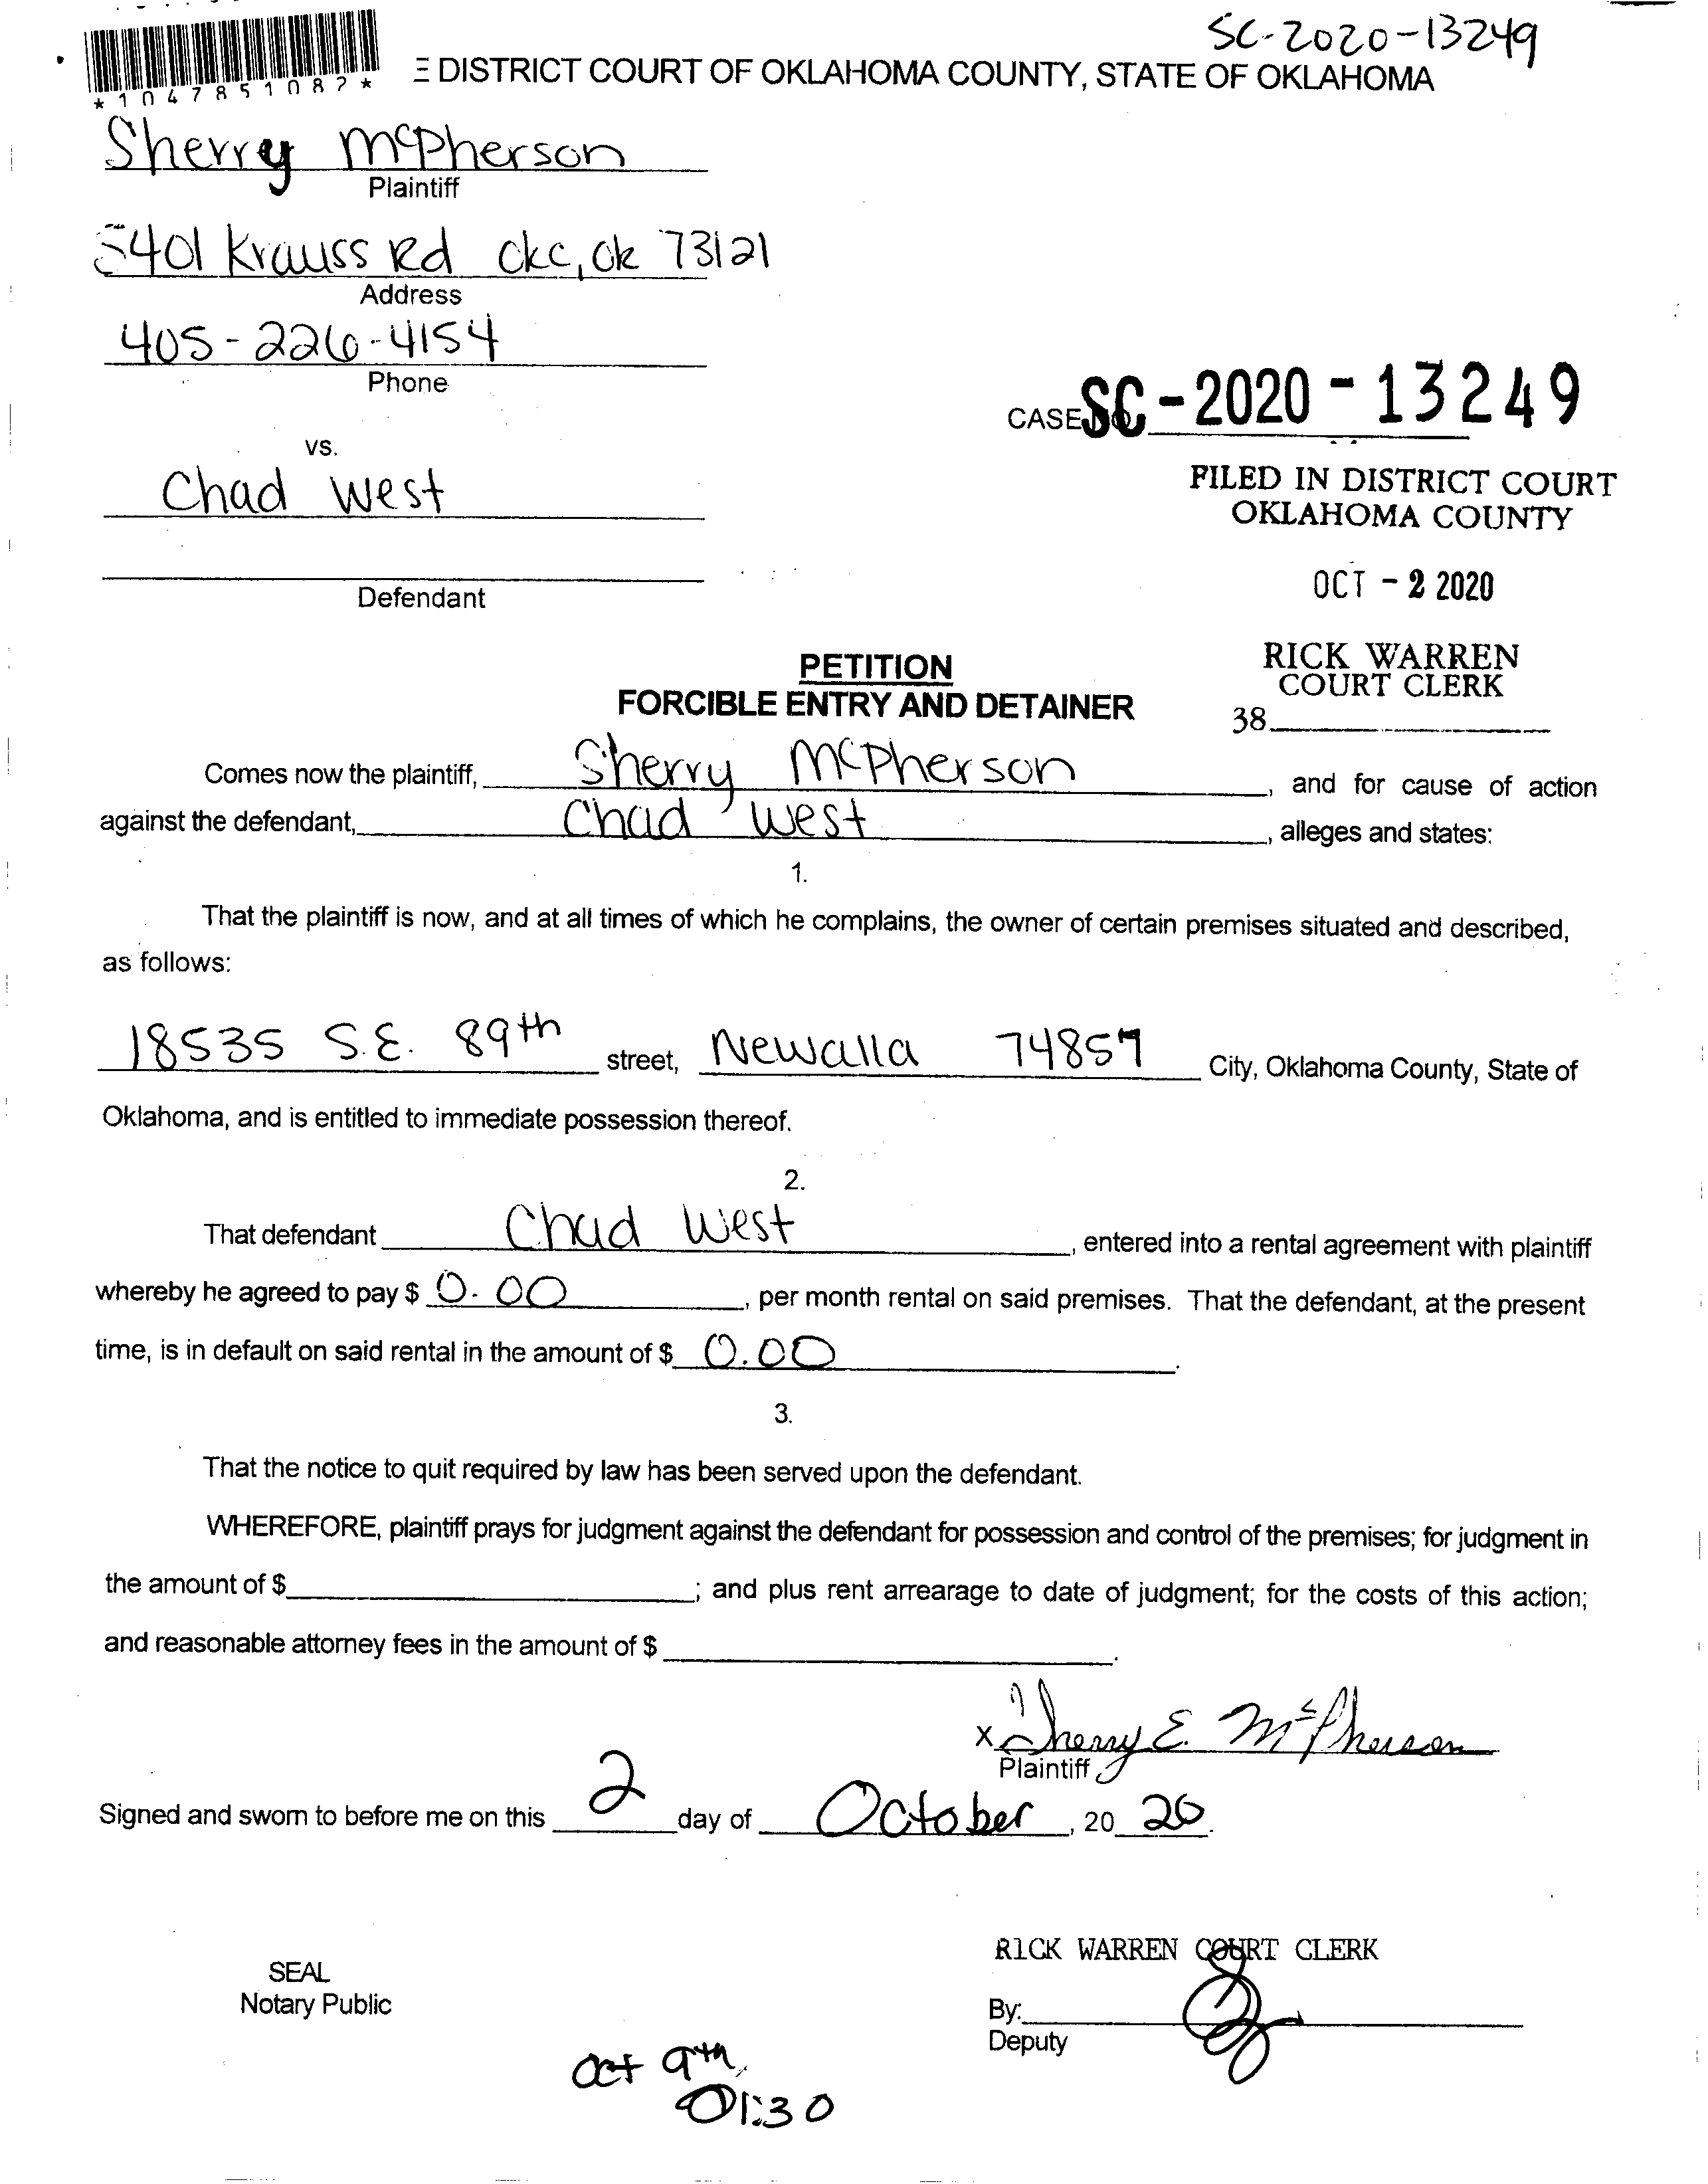 SC-2020-13249
*1047851082*
E DISTRICT COURT OF OKLAHOMA COUNTY, STATE OF OKLAHOMA
Sherry McPherson
Plaintiff
5401 Krauss Rd okc, ok 73121
Address
405-226-4154
Phone
CASE SC-2020-13249
vs.
Chad West
FILED IN DISTRICT COURT
OKLAHOMA COUNTY
OCT - 2 2020
Defendant
RICK WARREN
COURT CLERK
38
PETITION
FORCIBLE ENTRY AND DETAINER
Comes now the plaintiff, Sherry McPherson, and for cause of action
against the defendant, Chad West, alleges and states:
1.
That the plaintiff is now, and at all times of which he complains, the owner of certain premises situated and described,
as follows:
18535 S.E. 89th street, Newalla 74857 City, Oklahoma County, State of
Oklahoma, and is entitled to immediate possession thereof.
2.
That defendant Chad West, entered into a rental agreement with plaintiff
whereby he agreed to pay $ 0.00, per month rental on said premises. That the defendant, at the present
time, is in default on said rental in the amount of $ 0.00.
3.
That the notice to quit required by law has been served upon the defendant.
WHEREFORE, plaintiff prays for judgment against the defendant for possession and control of the premises; for judgment in
the amount of $ ; and plus rent arrearage to date of judgment; for the costs of this action;
and reasonable attorney fees in the amount of $ .
X Sherry E. McPherson
Plaintiff
Signed and sworn to before me on this 2 day of October, 20 20.
RICK WARREN COURT CLERK
SEAL
Notary Public
By:
Deputy
Oct 9th
01:30